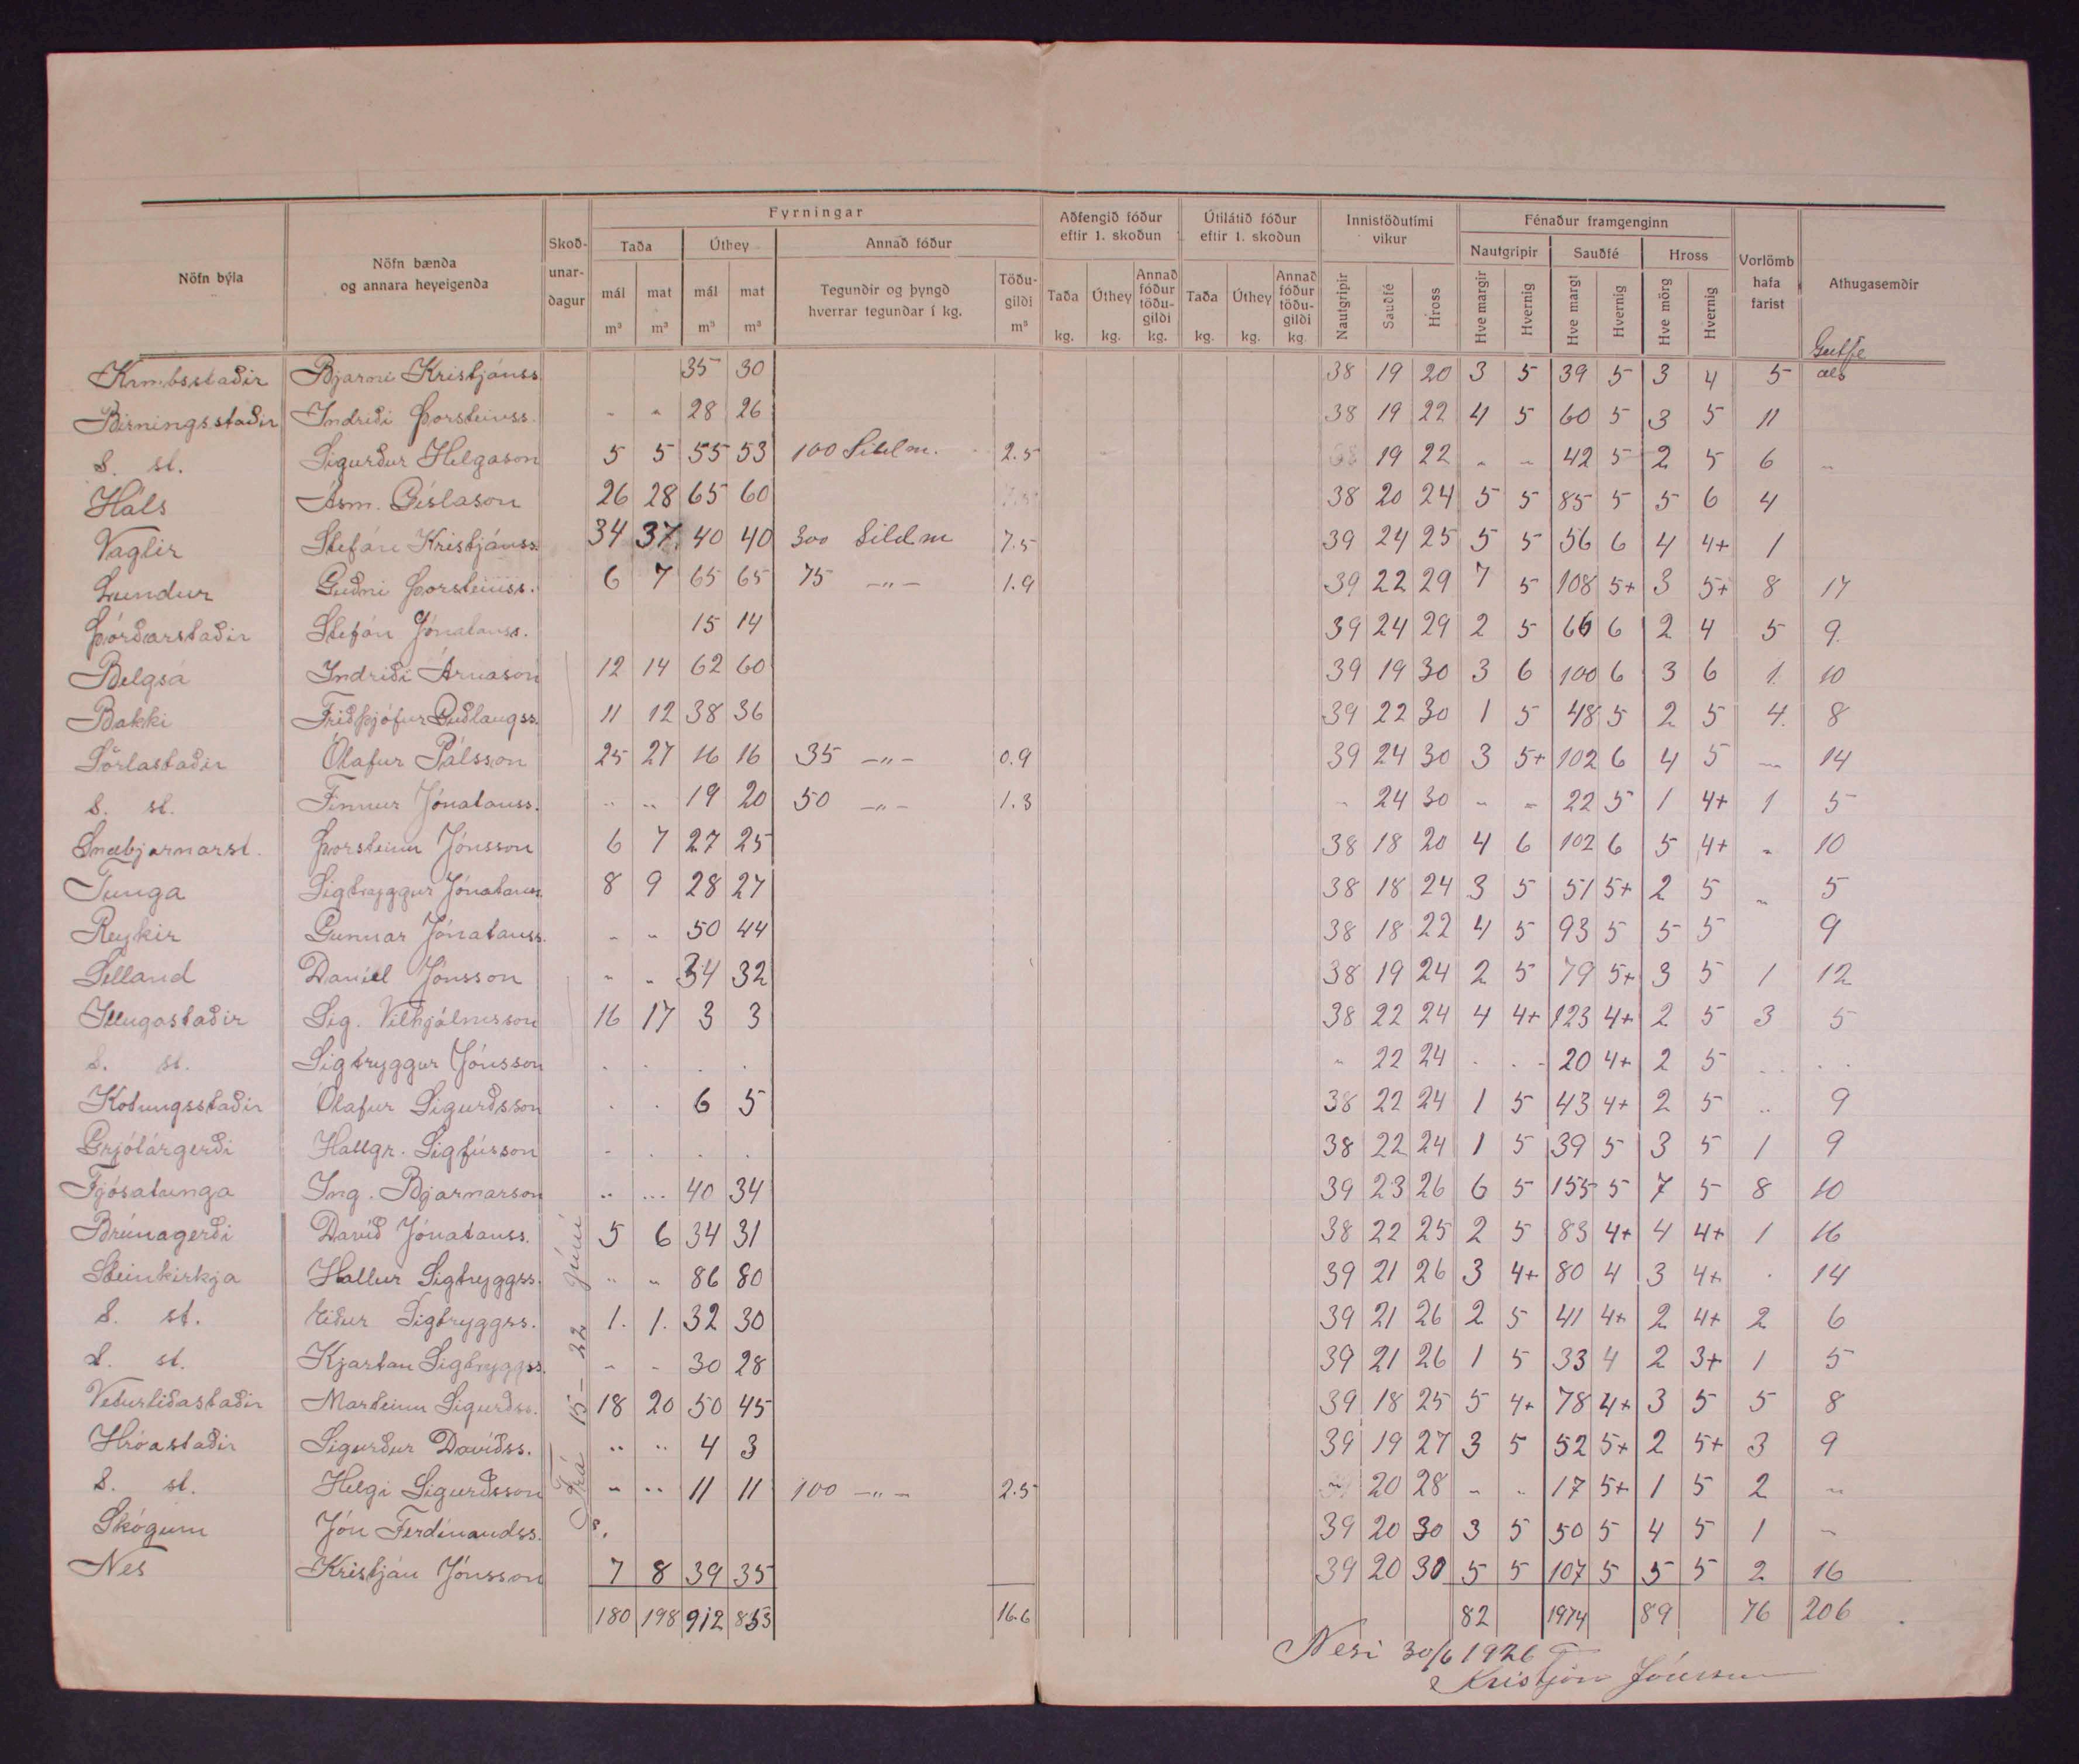 Fyrningar
Aðfengið fóður eftir 1. skoðun
Útilátið fóður eftir 1. skoðun
Innistöðutími vikur
Fénaður framgenginn
Nöfn býla
Nöfn bænda og annara heyeigenda
Skoðunar-dagur
Taða
Úthey
Annað fóður
Nautgripir
Sauðfé
Hross
Vorlömb hafa farist
Athugasemdir
mál m³
mat m³
mál m³
mat m³
Tegundir og þyngd hverrar tegundar í kg.
Töðu-gildi m³
Taða kg.
Úthey kg.
Annað fóður töðu-gildi kg.
Taða kg.
Úthey kg.
Annað fóður töðu-gildi kg.
Nautgripir
Sauðfé
Hross
Hve margir
Hvernig
Hve margt
Hvernig
Hve mörg
Hvernig
Geitfé
Kambsstaðir Bjarni Kristjánss. 35 30 38 19 20 3 5 39 5 3 4 5
Birningsstaðir Indriði Þorsteinss. - - 28 26 38 19 22 4 5 60 5 3 5 11
S. st. Sigurður Helgason 5 5 55 53 100 Síldm. 2.5 19 22 - - 42 5 2 5 6 -
Háls Ásm. Gíslason 26 28 65 60 38 20 24 5 5 85 5 5 6 4
Vaglir Stefán Kristjánss. 34 37 40 40 300 Síldm 7.5 39 24 25 5 5 56 6 4 4+ 1
Lundur Guðni Þorsteinss. 6 7 65 65 75 -"- 1.9 39 22 29 7 5 108 5+ 3 5+ 8 17
Þórðarstaðir Stefán Jónatanss. 15 14 39 24 29 2 5 66 6 2 4 5 9.
Belgsá Indriði Árnason 12 14 62 60 39 19 30 3 6 100 6 3 6 1. 10
Bakki Friðþjófur Guðlaugss. 11 12 38 36 39 22 30 1 5 48 5 2 5 4. 8
Sörlastaðir Ólafur Pálsson 25 27 16 16 35 -"- 0.9 39 24 30 3 5+ 102 6 4 5 - 14
S. st. Finnur Jónatanss. .. .. 19 20 50 -"- 1.3 - 24 30 - - 22 5 1 4+ 1 5
Snæbjarnarst. Þorsteinn Jónsson 6 7 27 25 38 18 20 4 6 102 6 5 4+ - 10
Tunga Sigtryggur Jónatanss. 8 9 28 27 38 18 24 3 5 51 5+ 2 5 " 5
Reykir Gunnar Jónatanss. - - 50 44 38 18 22 4 5 93 5 5 5 9
Selland Daníel Jónsson " " 34 32 38 19 24 2 5 79 5+ 3 5 1 12
Illugastaðir Sig. Vilhjálmsson 16 17 3 3 38 22 24 4 4+ 123 4+ 2 5 3 5
S. st. Sigtryggur Jónsson . . . . " 22 24 . . - 20 4+ 2 5 . . . .
Kotungsstaðir Ólafur Sigurðsson . . 6 5 38 22 24 1 5 43 4+ 2 5 .. 9
Grjótárgerði Hallgr. Sigfússon - . . . 38 22 24 1 5 39 5 3 5 1 9
Fjósatunga Ing. Bjarnarson .. ... 40 34 39 23 26 6 5 155 5 7 5 8 10
Brúnagerði Davíð Jónatanss. 5 6 34 31 38 22 25 2 5 83 4+ 4 4+ 1 16
Steinkirkja Hallur Sigtryggss. " " 86 80 39 21 26 3 4+ 80 4 3 4+ . 14
S. st. Eiður Sigtryggss. 1. 1. 32 30 39 21 26 2 5 41 4+ 2 4+ 2 6
S. st. Kjartan Sigtryggss. - - 30 28 39 21 26 1 5 33 4 2 3+ 1 5
Veturliðastaðir Marteinn Sigurðss. 18 20 50 45 39 18 25 5 4+ 78 4+ 3 5 5 8
Hróastaðir Sigurður Davíðss. .. .. 4 3 39 19 27 3 5 52 5+ 2 5+ 3 9
S. st. Helgi Sigurðsson - .. 11 11 100 -"- 2.5 20 28 - .. 17 5+ 1 5 2 "
Skógum Jón Ferdínandss. 39 20 30 3 5 50 5 4 5 1 -
Nes Kristján Jónsson 7 8 39 35 39 20 30 5 5 107 5 5 5 2 16
180 198 912 853 16.6 82 1974 89 76 206
Frá 15 - 22 júní
Nesi 30/6 1926
Kristján Jónsson